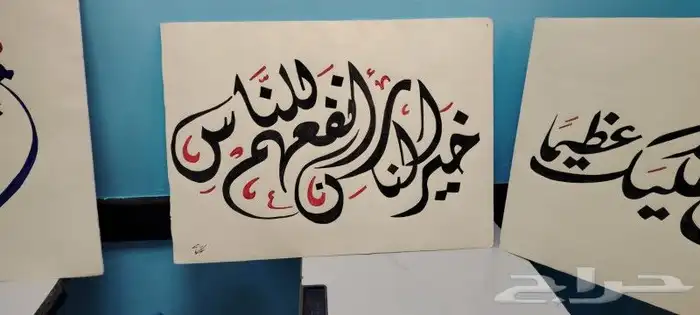 خير الناس أنفعهم للناس
عليك عظيما
حراج